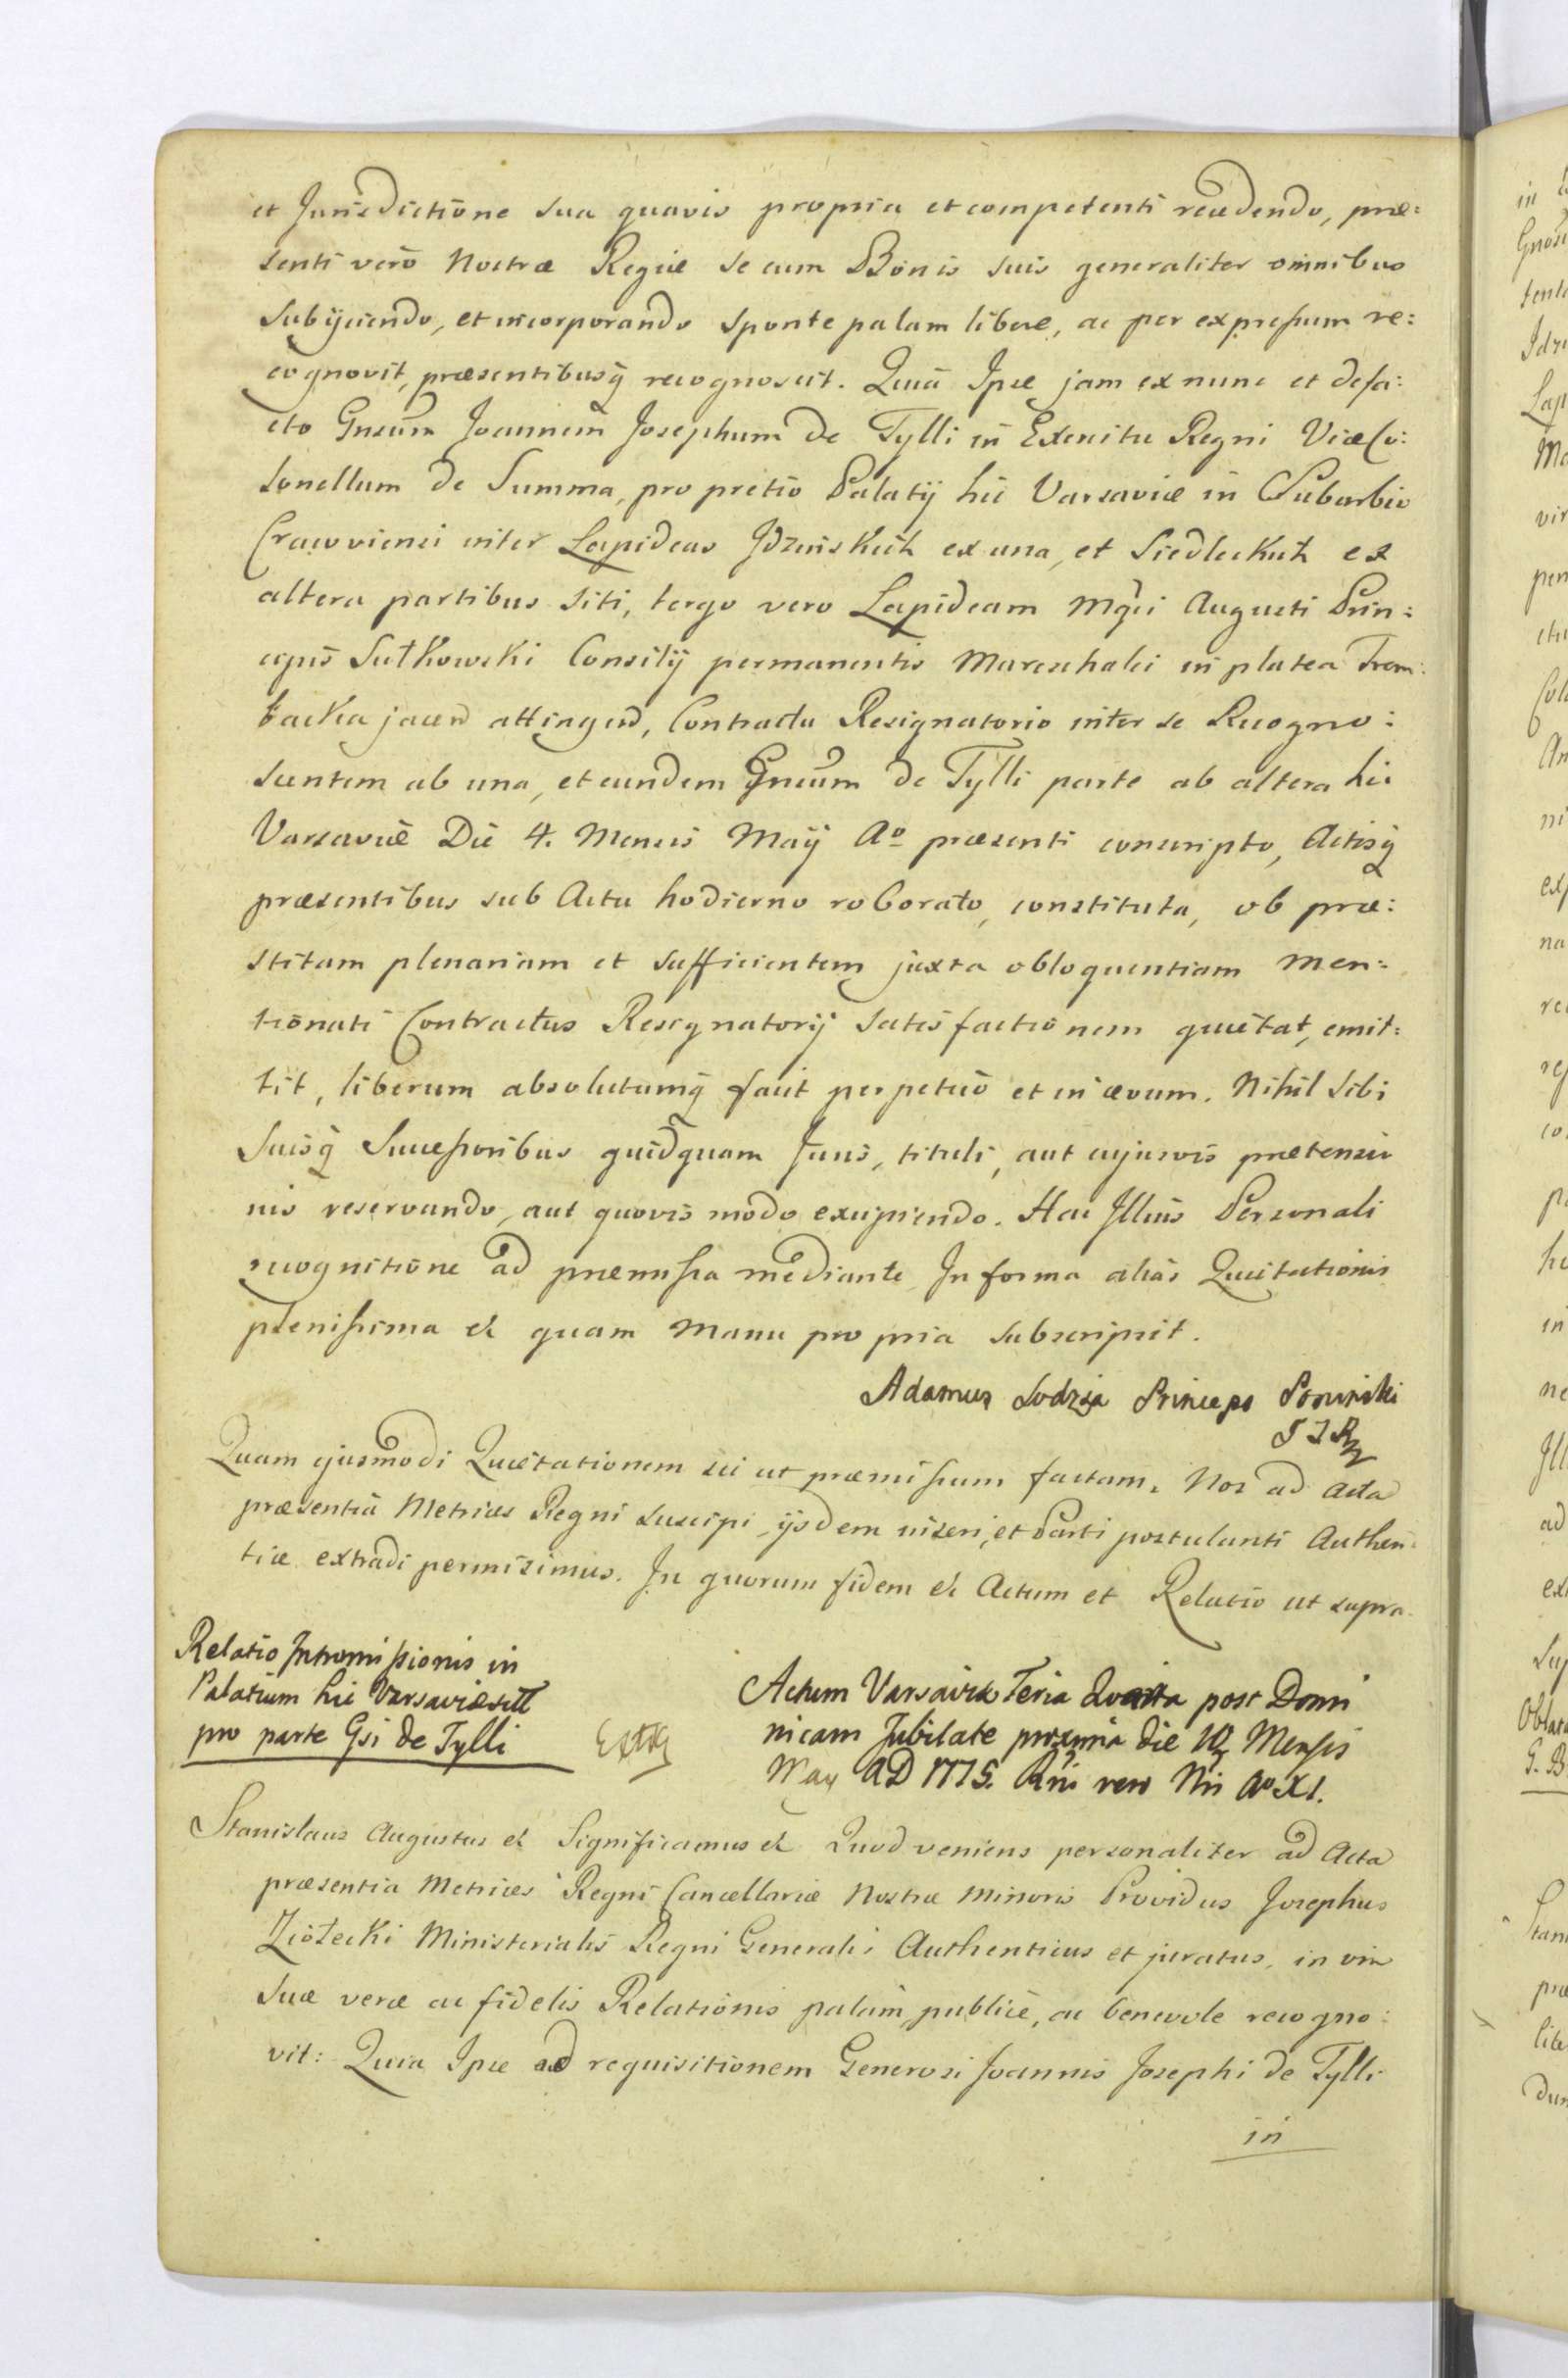 et Jurisdictione sua quavis propria et competenti recedendo, præ:
senti vero Nostræ Regiæ se cum Bonis suis generaliter omnibus
subijciendo, et incorporando sponte palam libere, ac per expressum re:
cognovit, præsentibusq recognoscit. Quia Ipse jam ex nunc et de fa:
cto Gnsum Joannem Josephum de Tylli in Exercitu Regni ViceCo:
lonellum de Summa, pro pretio Palatij hic Varsaviæ in Suburbio
Cracoviensi inter Lapideas Jdzińskich ex una, et Siedleckich ex
altera partibus siti, tergo vero Lapideam Mgci Augusti Prin:
cipis Sułkowski Consilij permanentis Mareschalci in platea Trem:
backa jacen attingen, Contractu Resignatorio inter se Recogno:
scentem ab una, et eundem Gnsum de Tylli parte ab altera hic
Varsaviæ Die 4. Mensis Maij Ao præsenti conscripto, Actisq
præsentibus sub Actu hodierno roborato, constituta, ob præ:
stitam plenariam et sufficientem juxta obloquentiam men:
tionati Contractus Resignatorij satisfactionem quietat, emit:
tit, liberum absolutumq facit perpetuo et in ævum. Nihil sibi
suisq Successoribus quidquam Juris, tituli, aut cujusvis prætensio
nis reservando, aut quovis modo excipiendo. Hac Illius Personali
recognitione ad præmissa mediante In forma aliàs Quietationis
plenissima et quam Manu propria subscripsit.
Adamus Lodzia Princeps Poninski
Quam ejusmodi Quietationem sic ut præmissum factam. Nos ad Acta
præsentia Metrices Regni suscipi, ijsdem inseri, et Parti postulanti Authen:
tice extradi permisimus. In quorum fidem et Actum et Relatio ut supra.
Relatio Intromissionis in
Palatium hic Varsaviæ sitt
pro parte Gsi de Tylli
Extr
Actum Varsaviæ Feria Quarta post Domi
nicam Jubilate proxima die 10 Mensis
May AD 1775. Rni vero Nri Ao XI.
Stanislaus Augustus et Significamus et Quod veniens personaliter ad Acta
præsentia Metrices Regni Cancellariæ Nostræ Minoris Providus Josephus
Ziołecki Ministerialis Regni Generalis Authenticus et juratus, in vim
suæ veræ ac fidelis Relationis palam, publice, ac benevole recogno:
vit: Quia Ipse ad requisitionem Generosi Joannis Josephi de Tylli
in